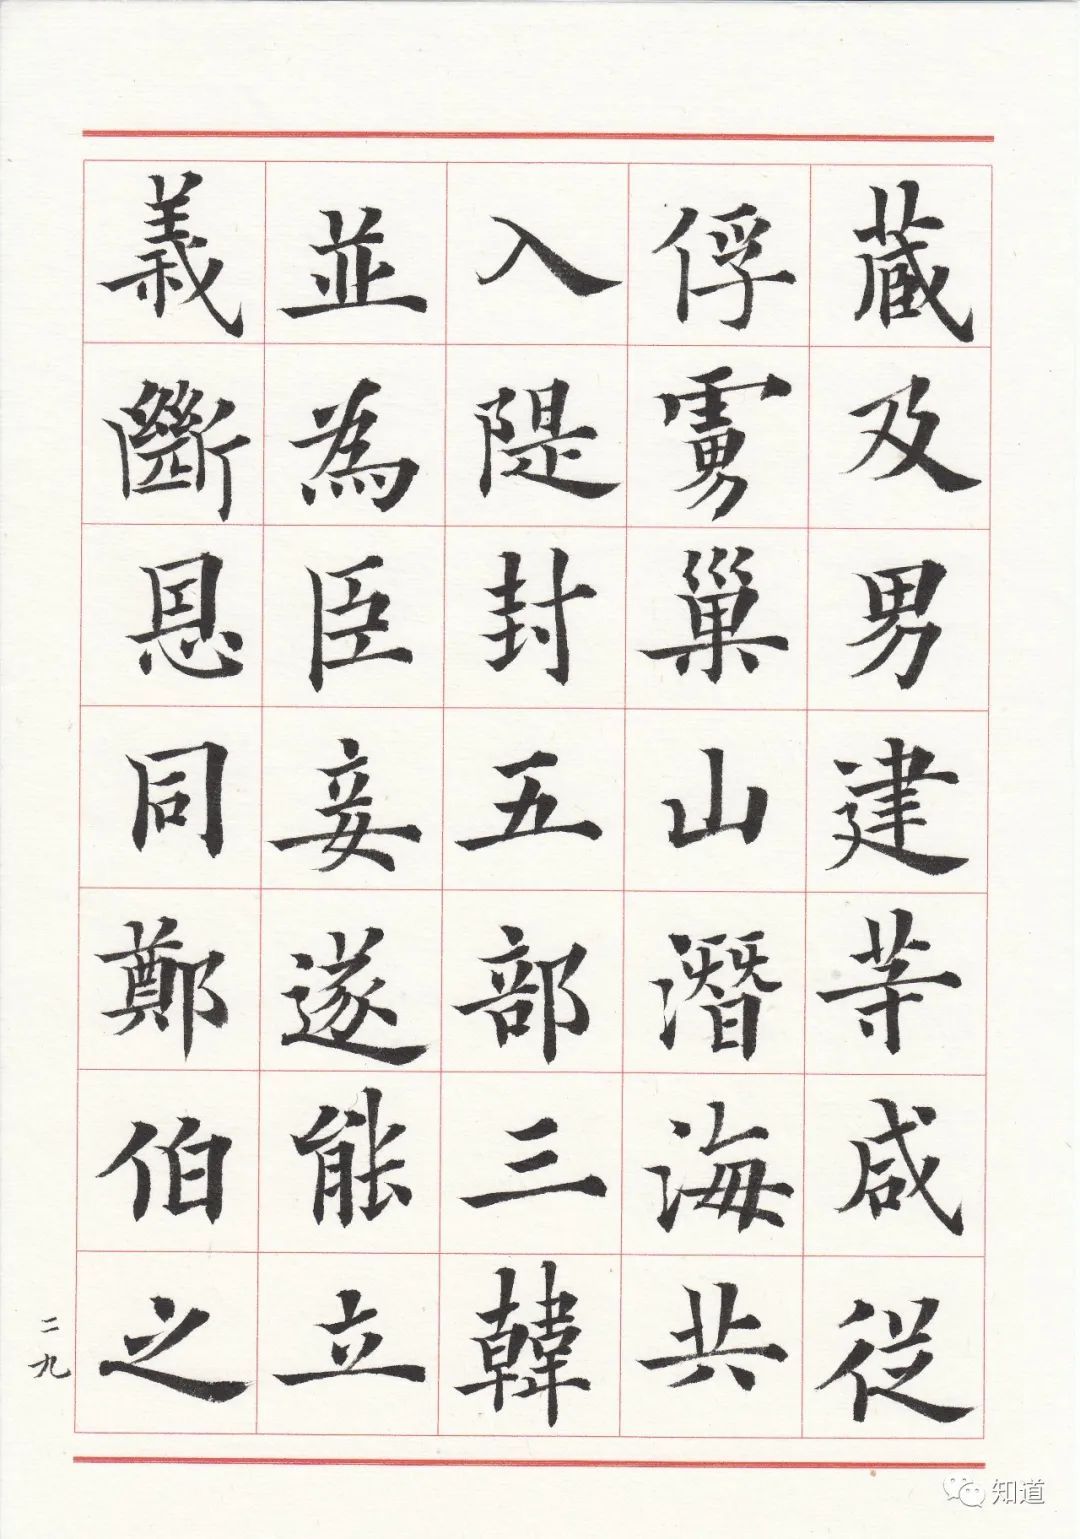 蔵及男建等咸从
俘虜巢山潛海共
入隄封五部三韓
並為臣妾遂能立
義斷恩同鄭伯之
二九
知道